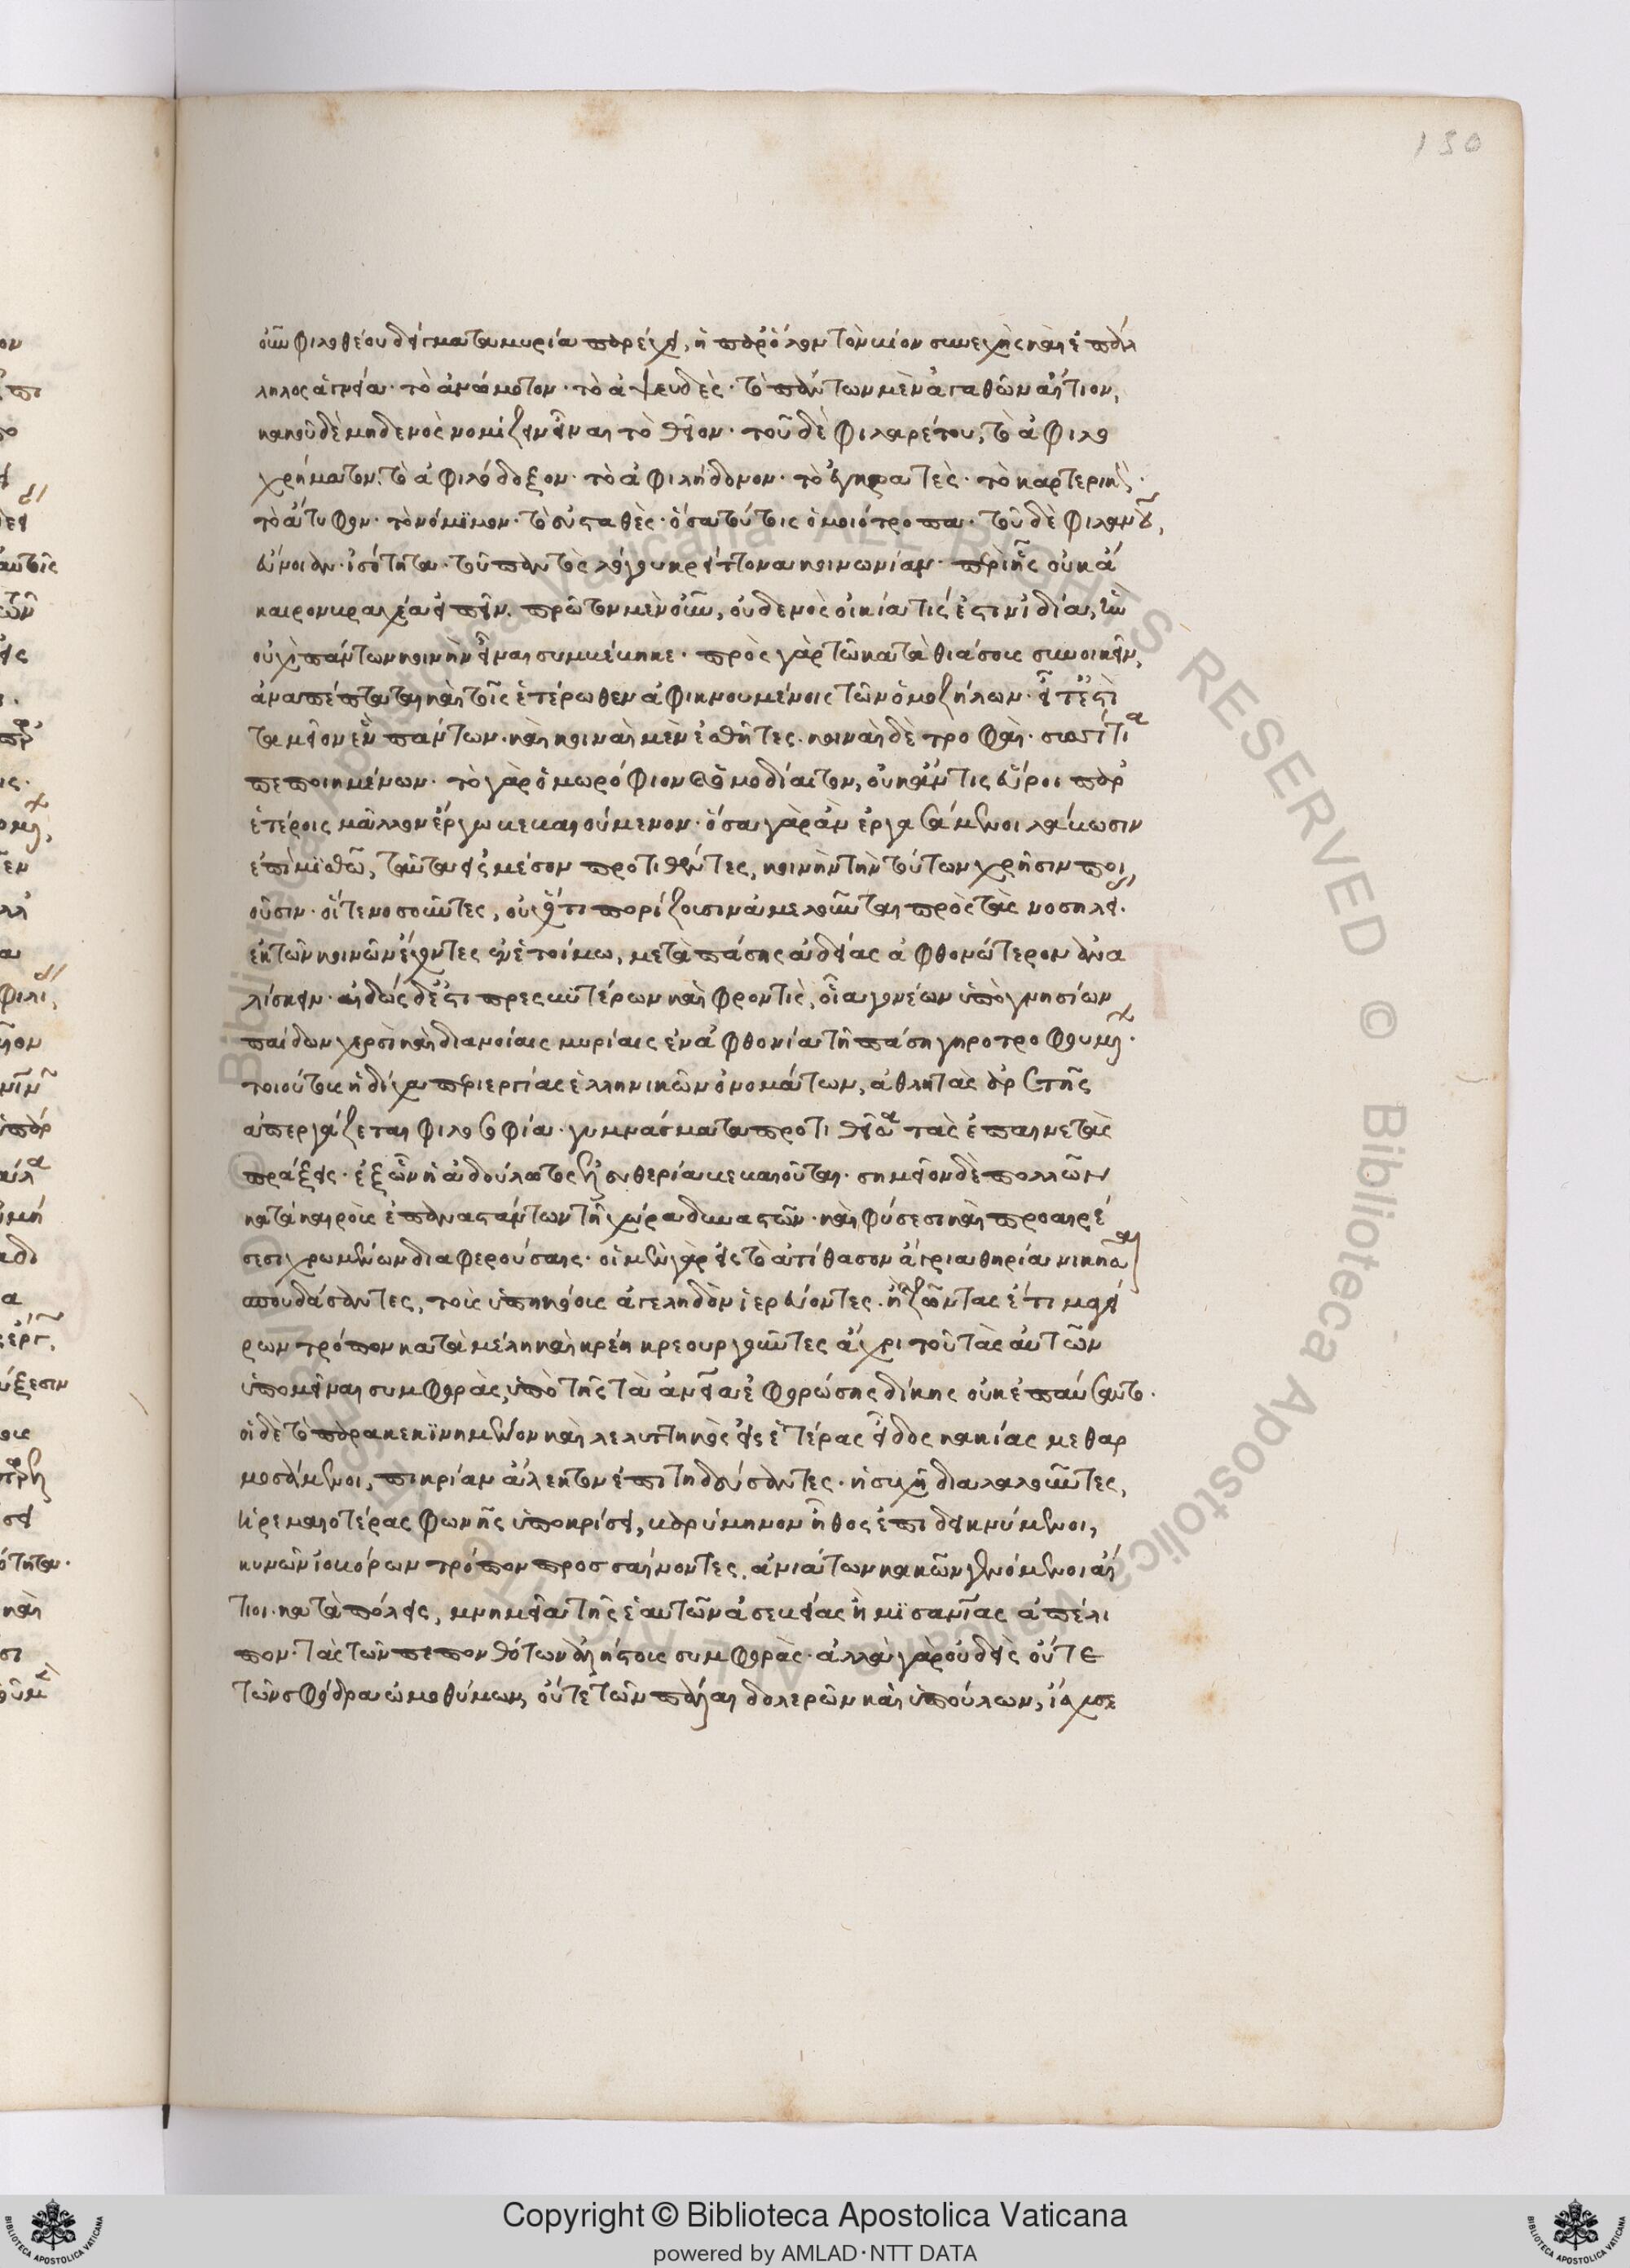 130
οὖν φιλοθέου δείγματα μυρία παρέχει, ἡ παρ' ὅλον τὸν βίον συνεχὴς καὶ ἐπάλ
ληλος ἁγνεία· τὸ ἀνώμοτον· τὸ ἀψευδὲς· τὸ πάντων μὲν ἀγαθῶν αἴτιον,
κακοῦ δὲ μηδενὸς νομίζειν εἶναι τὸ θεῖον· τοῦ δὲ φιλαρέτου, τὸ ἀφιλο
χρήματον· τὸ ἀφιλόδοξον· τὸ ἀφιλήδονον· τὸ ἐγκρατὲς· τὸ καρτερικὸν·
τὸ ἄτυφον· τὸ νόμιμον· τὸ εὐσταθὲς· ὅσα τούτοις ὁμοιότροπα· τοῦ δὲ φιλανου,
εὔνοιαν· ἰσότητα· τοῦ παντὸς λόγου κρείττονα κοινωνίαν· περὶ ἧς οὐκ ἄ
καιρον βραχέα εἰπεῖν. πρῶτον μὲν οὖν, οὐδενὸς οἰκία τίς ἐστιν ἰδία, ἣν
οὐχὶ πάντων κοινὴν εἶναι συμβέβηκε· πρὸς γὰρ τῶ κατὰ θιάσους συνοικεῖν,
ἀναπέπταται καὶ τοῖς ἑτέρωθεν ἀφικνουμένοις τῶν ὁμοζήλων· εἶτ' ἐστὶ
ταμεῖον ἓν πάντων· καὶ κοιναὶ μὲν ἐσθῆτες· κοιναὶ δὲ τροφαὶ· συσσίτια
πεποιημένων· τὸ γὰρ ὁμωρόφιον ἢ ὁμοδίαιτον, οὐκ ἄν τις εὕροι παρ'
ἑτέροις μᾶλλον ἔργω βεβαιούμενον· ὅσα γὰρ ἂν ἐργασάμενοι λάβωσιν
ἐπὶ μισθῶ, ταῦτα εἰς μέσον προτιθέντες, κοινὴν τὴν τούτων χρῆσιν ποι
οῦσιν· οἵ τε νοσοῦντες, οὐχ ὅτι πορίζουσιν ἀμελοῦνται πρὸς τὰς νοσηλεί.
ἐκ τῶν κοινῶν ἔχοντες ἐν ἑτοίμω, μετὰ πάσης ἀδείας ἀφθονώτερον ἀνα
λίσκειν· αἰδώς δέ ἐστι πρεσβυτέρων καὶ φροντὶς, οἷα γονέων ὑπὸ γνησίων
παίδων χερσὶ καὶ διανοίαις μυρίαις ἐν ἀφθονία τῆ πάση γηροτροφουμ.
τοιούτους ἡ δίχα περιεργίας ἑλληνικῶν ὀνομάτων, ἀθλητὰς ἀρετῆς
ἀπεργάζεται φιλοσοφία· γυμνάσματα προτιθεῖσα τὰς ἐπαινετὰς
πράξεις· ἐξ ὧν ἡ ἀδούλωτος ἐλευθερία βεβαιοῦται. σημεῖον δὲ πολλῶν
κατὰ καιροὺς ἐπαναστάντων τῆ χώρα δυναστῶν· καὶ φύσεσι καὶ προαιρέ
σεσι χρωμένων διαφερούσαις· οἱ μὲν γὰρ εἰς τὸ ἀτίθασον ἄγρια θηρία νικῆσαι
σπουδάσαντες, τοὺς ὑπηκόους ἀγεληδὸν ἱερεύοντες. ἢ ζῶντας ἔτι μαγεί
ρων τρόπον κατὰ μέλη καὶ κρέη κρεουργοῦντες ἄχρι τοῦ τὰς αὐτῶν
ὑπομεῖναι συμφορὰς, ὑπὸ τῆς τὰ ἀνθρώπεια ἐφορώσης δίκης οὐκ ἐπαύσαντο.
οἱ δὲ τὸ παρακεκινημένον καὶ λελυττηκὸς εἰς ἑτέρας εἶδος κακίας μεθαρ
μοσάμενοι, πικρίαν ἄλεκτον ἐπιτηδεύσαντες· ἡσυχῆ διαλαλοῦντες,
ἠρεμαιοτέρας φωνῆς ὑποκρίσει, βαρύμηνον ἦθος ἐπιδεικνύμενοι,
κυνῶν ἰοβόρων τρόπον προσσαίνοντες. ἀνιάτων κακῶν γενόμενοι αἴ
τιοι· κατὰ πόλεις, μνημεῖα τῆς ἑαυτῶν ἀσεβείας ἢ μισανίας ἀπέλι
πον· τὰς τῶν πεπονθότων ἀλήστους συμφορὰς· ἀλλὰ γὰρ οὐδεὶς οὔτε
τῶν σφόδρα ὠμοθύμων, οὔτε τῶν πάνυ δολερῶν καὶ ὑπούλων, ἴσχυσε
Copyright © Biblioteca Apostolica Vaticana
powered by AMLAD·NTT DATA